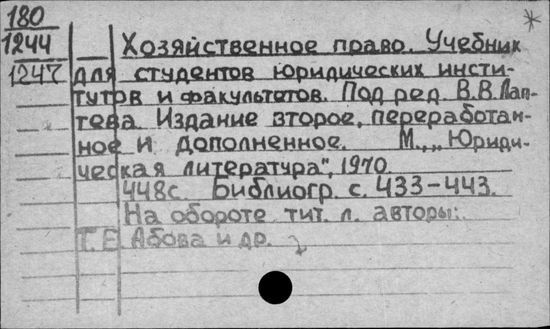 180
1244
1247
*
Хозяйственное право. Учебник
для студентов юридических инсти-
тутов и факультетов. Под ред. В.В.Лап-
тева. Издание второе, переработан-
ное и дополненное. М., „Юриди-
ческая литература", 1970.
448с. Библиогр. с. 433-443.
На обороте тит. л. авторы:
Т.Е. Абова и др.